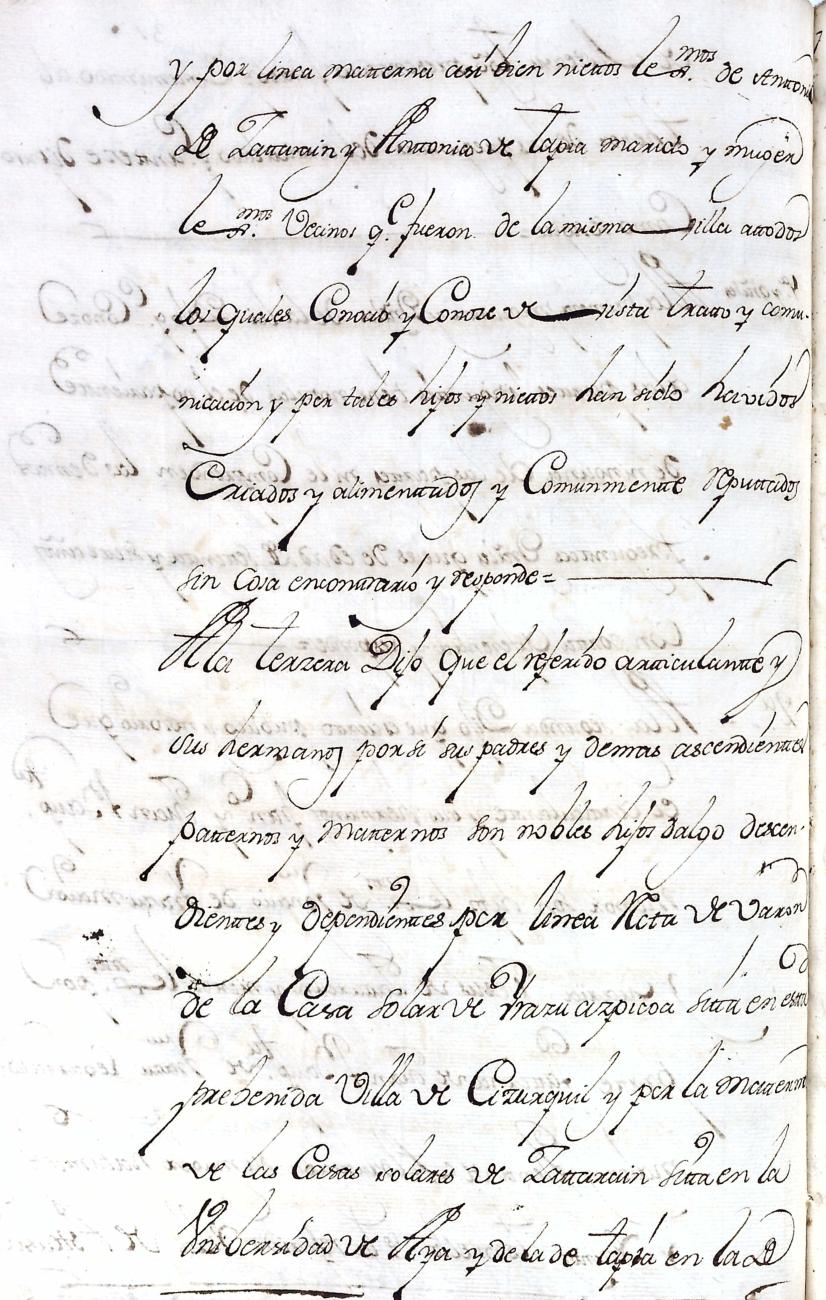 y por linea matterna así bien niettos le.mos de Antonio
De Zattarain y Anttonia de tapia marido y muger
le.mos Vecinos q.e fueron de la misma villa attodos
los quales Conoció y Conoze de vista tratto y comu-
nicación y por tales hijos y niettos han sido havidos
Criados y alimenttados y Comunmentte Reputtados
sin Cosa encontrario y responde=
Ala terzera Dijo que el referido articulantte y
sus hermanos por sí sus padres y demas ascendienttes
patternos y matternos son nobles hijos dalgo descen-
dienttes y dependienttes por linea Recta de varon
de la Casa solar de Yrazuazpicoa sitta en esta
prebenida Villa de Cizurquil y por la matterna
de las Casas solares de Zattarain sitta en la
Unibersidad de Aya y de la de tapia en la D